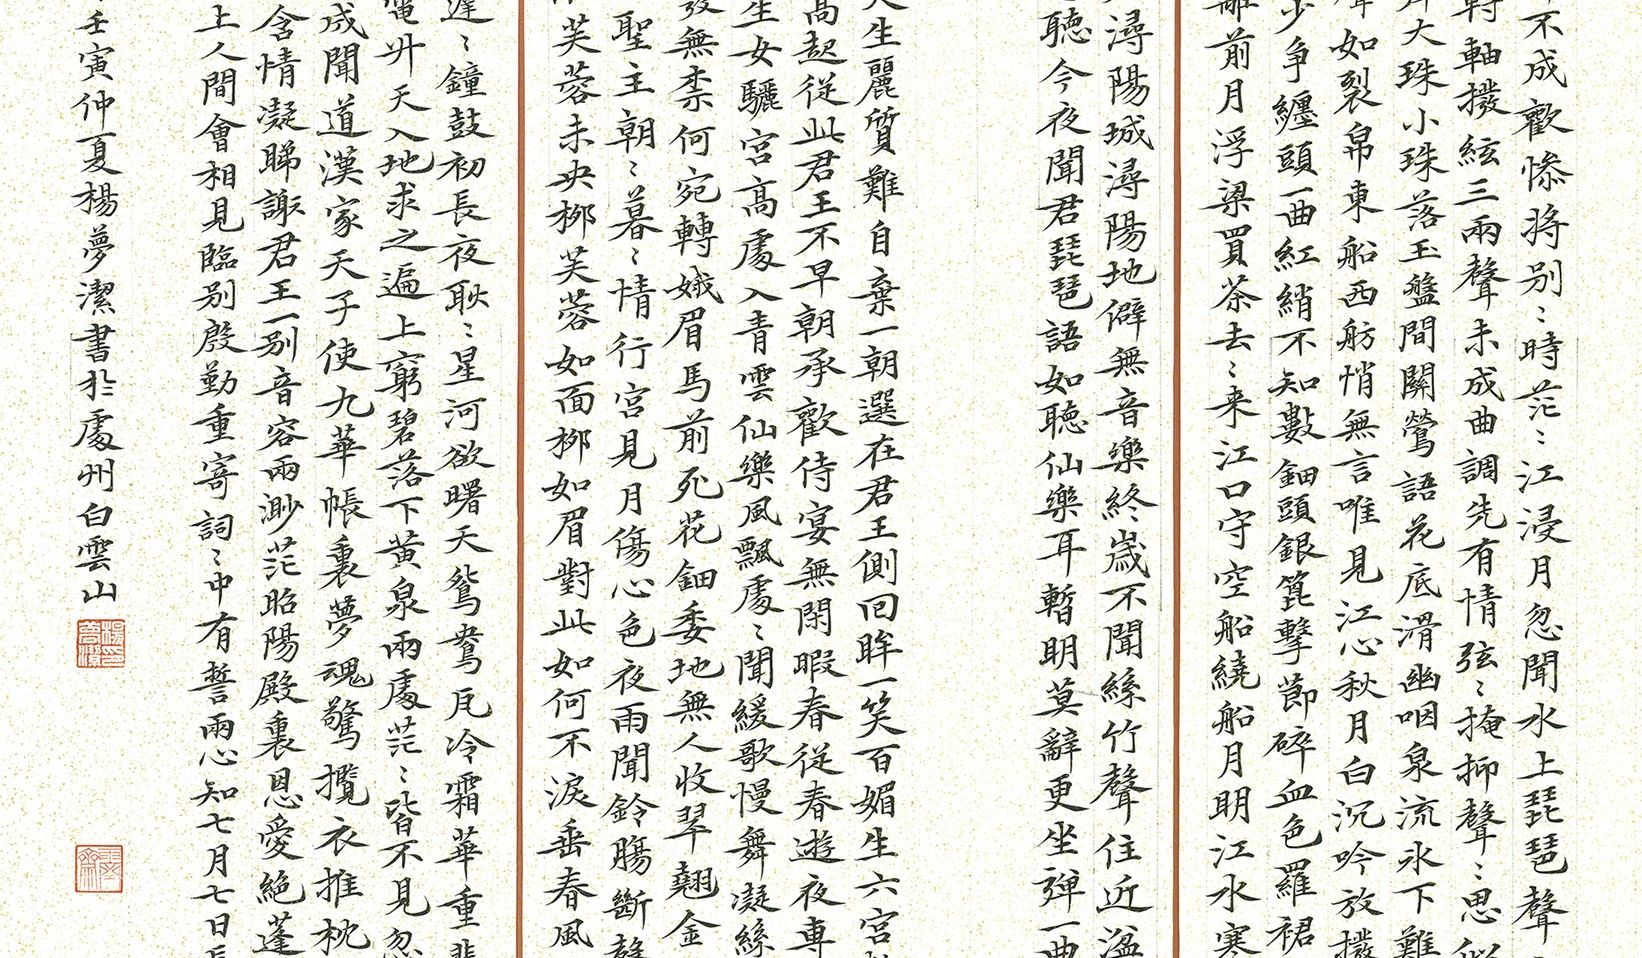 不成歡慘將别〻時茫〻江浸月忽聞水上琵琶聲
轉軸撥絃三兩聲未成曲調先有情弦〻掩抑聲〻思似
大珠小珠落玉盤間關鶯語花底滑幽咽泉流氷下難
如裂帛東船西舫悄無言唯見江心秋月白沉吟放撥
少爭纏頭一曲紅綃不知數鈿頭銀篦擊節碎血色羅裙
離前月浮梁買茶去〻来江口守空船繞船月明江水寒
潯陽城潯陽地僻無音樂終歲不聞絲竹聲住近湓
聽今夜聞君琵琶語如聽仙樂耳暫明莫辭更坐彈一曲
天生麗質難自棄一朝選在君王側回眸一笑百媚生六宮
高起從此君王不早朝承歡侍宴無閑暇春從春遊夜專
生女驪宮高處入青雲仙樂風飄處〻聞緩歌慢舞凝絲
發無柰何宛轉娥眉馬前死花鈿委地無人收翠翹金
聖主朝〻暮〻情行宮見月傷心色夜雨聞鈴膓斷聲
芙蓉未央柳芙蓉如面柳如眉對此如何不淚垂春風
遲〻鐘鼓初長夜耿〻星河欲曙天鴛鴦瓦冷霜華重
電升天入地求之遍上窮碧落下黄泉兩處茫〻皆不見忽
成聞道漢家天子使九華帳裏夢魂驚攬衣推枕
含情凝睇謝君王一别音容兩渺茫昭陽殿裏恩愛絶蓬
上人間會相見臨别殷勤重寄詞〻中有誓兩心知七月七日長
壬寅仲夏楊夢潔書於處州白雲山